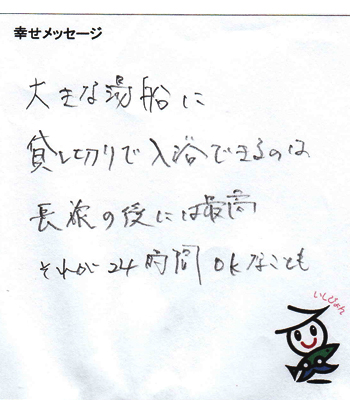 幸せメッセージ
大きな湯船に
貸し切りで入浴できるのは
長旅の後には最高
それが24時間OKなことも
いしぴょん